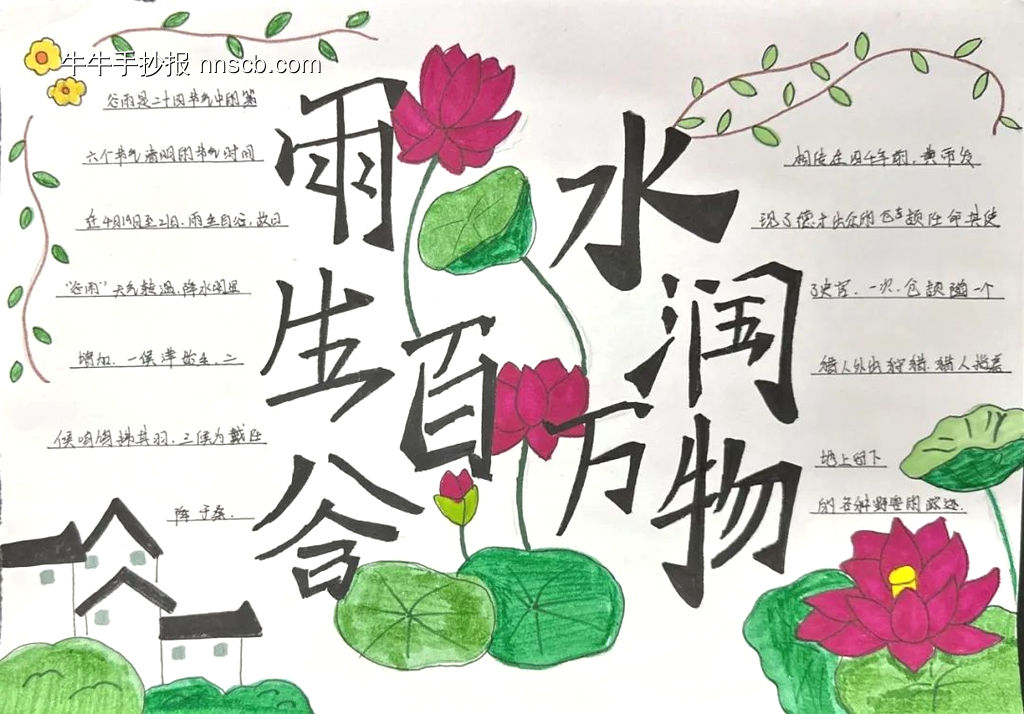 牛牛手抄报 nnscb.com
雨生百谷
水润万物
谷雨是二十四节气中的第
六个节气清明的节气时间
在4月19日至21日.雨生百谷,故曰
"谷雨"天气转温.降水明显
增加.一候萍始生.二
候鸣鸠拂其羽.三候为戴任
降于桑.
相传在四千年前,黄帝发
现了德才出众的仓颉任命其使
了史官.一次.仓颉随一个
猎人外出狩猎.猎人指着
地上留下
的各种野兽的踪迹.